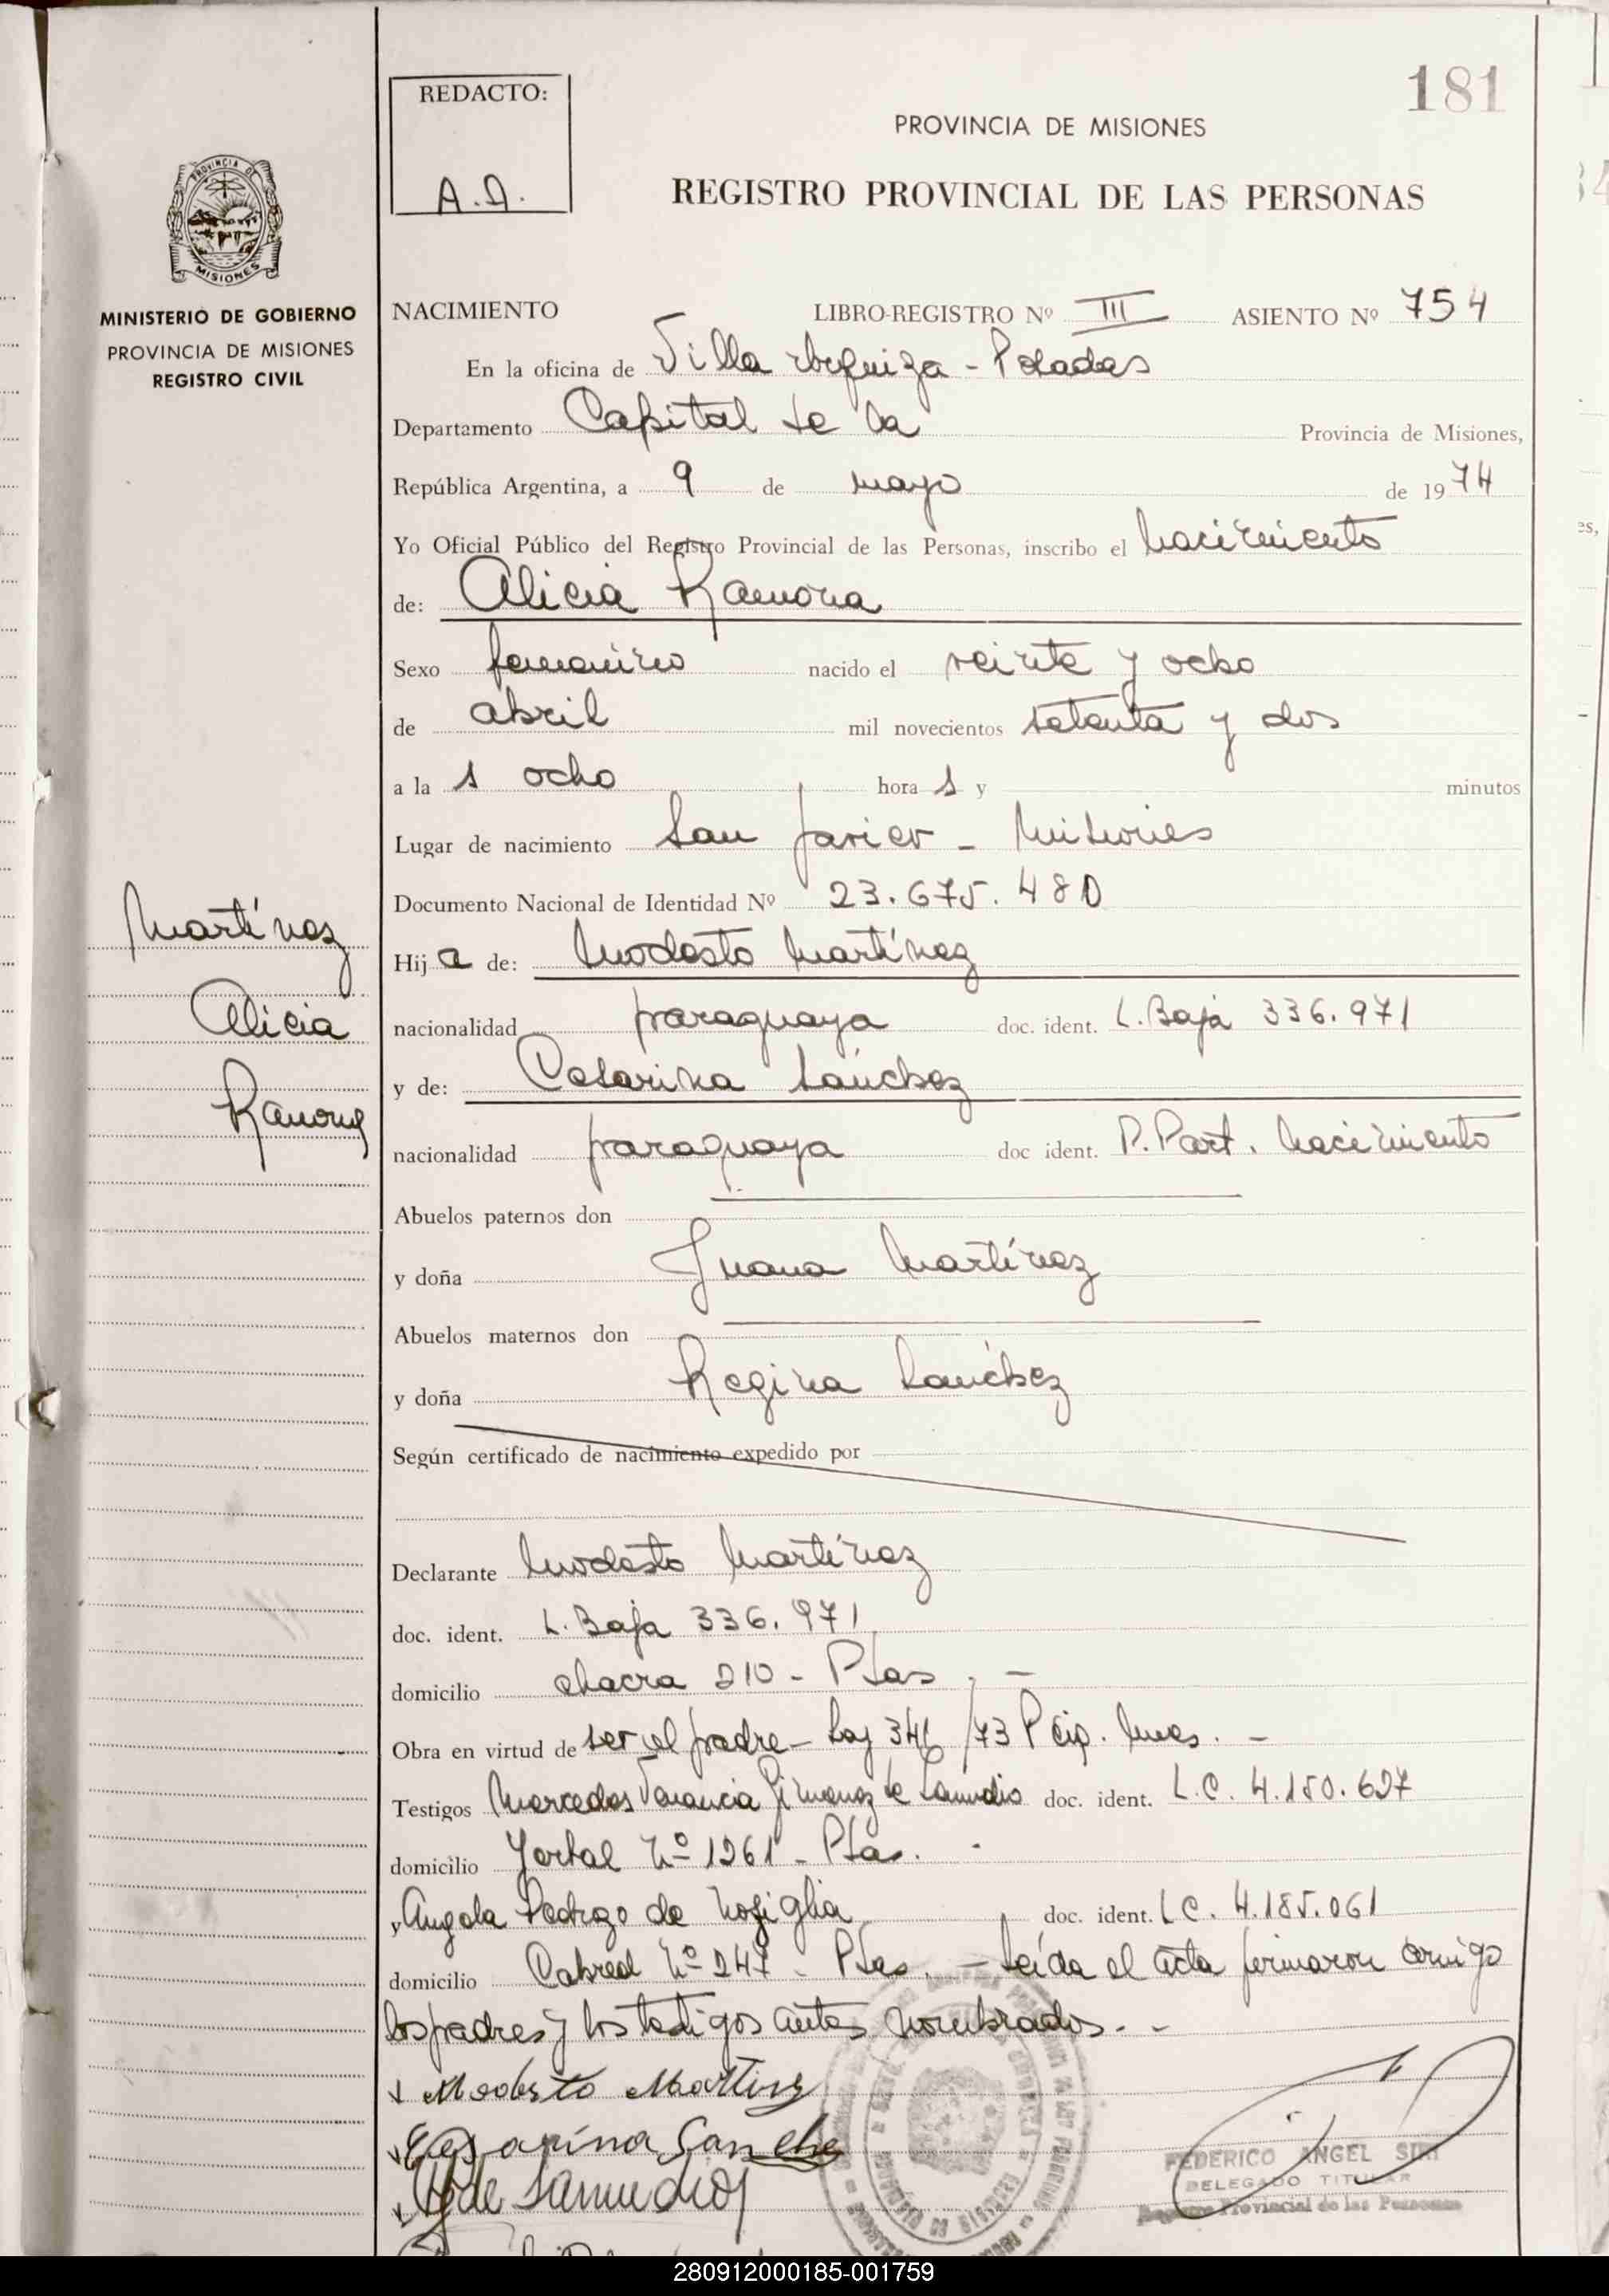 181
REDACTO:
A.A.
PROVINCIA DE MISIONES
REGISTRO PROVINCIAL DE LAS PERSONAS
PROVINCIA DE
MISIONES
MINISTERIO DE GOBIERNO
PROVINCIA DE MISIONES
REGISTRO CIVIL
NACIMIENTO LIBRO-REGISTRO Nº III ASIENTO Nº 754
En la oficina de Villa Urquiza - Posadas
Departamento Capital de la Provincia de Misiones,
República Argentina, a 9 de mayo de 1974
Yo Oficial Público del Registro Provincial de las Personas, inscribo el nacimiento
de: Alicia Ramona
Sexo femenino nacido el veinte y ocho
de abril mil novecientos setenta y dos
a la s ocho hora s y minutos
Lugar de nacimiento San Javier - Misiones
Documento Nacional de Identidad Nº 23.675.480
Martínez
Alicia
Ramona
Hij a de: Modesto Martínez
nacionalidad paraguaya doc. ident. L. Baja 336.971
y de: Cesarina Sánchez
nacionalidad paraguaya doc ident. P. Part. Nacimiento
Abuelos paternos don
y doña Juana Martínez
Abuelos maternos don
y doña Regina Sánchez
Según certificado de nacimiento expedido por
Declarante Modesto Martínez
doc. ident. L. Baja 336.971
domicilio chacra 210 - Psas. -
Obra en virtud de ser el padre - Ley 341/73 Pcia. Mnes. -
Testigos Mercedes Venancia Gimenez de Samudio doc. ident. L.C. 4.150.627
domicilio Yerbal Nº 1261 - Psas.
y Angela Pedrozo de Nosiglia doc. ident. L C. 4.185.061
domicilio Cabred Nº 247 - Psas. - Leída el acta firmaron conmigo
los padres y los testigos antes nombrados. -
Modesto Martinez
Cesarina Sanche
de Samudio
FEDERICO ANGEL SIRI
DELEGADO TITULAR
Registro Provincial de las Personas
280912000185-001759